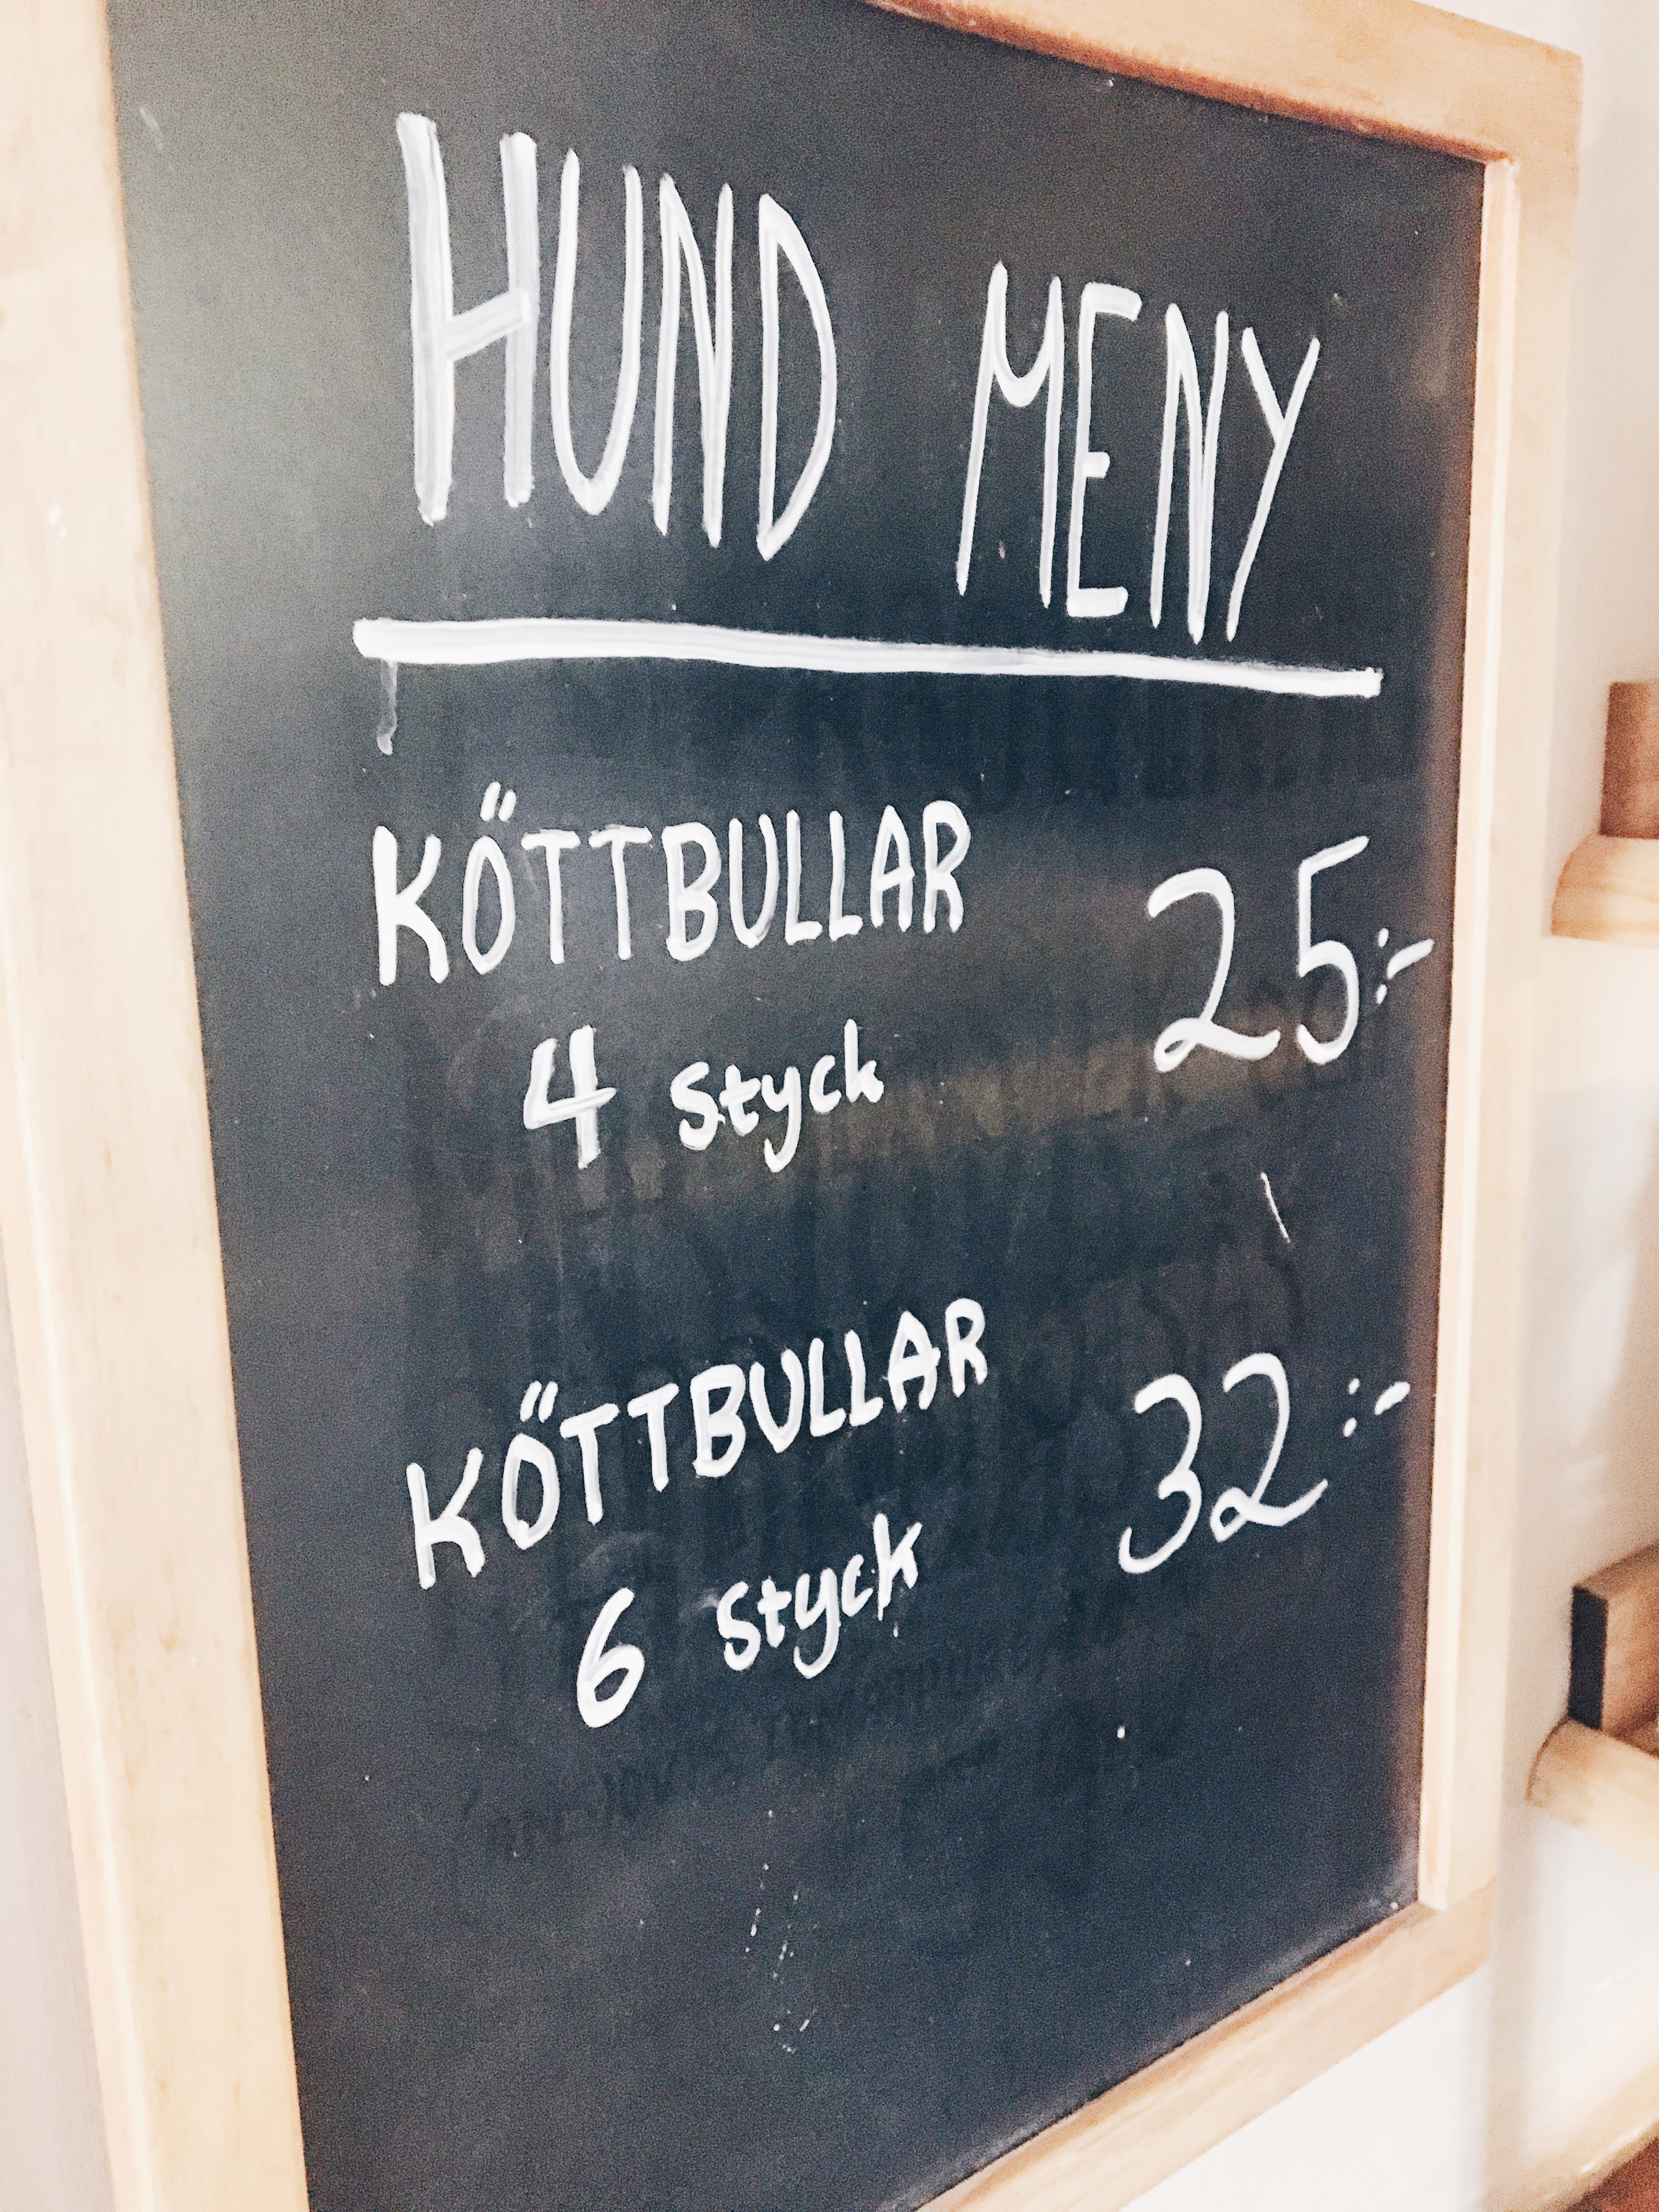 HUND MENY
KÖTTBULLAR 25:-
4 styck
KÖTTBULLAR 32:-
6 styck